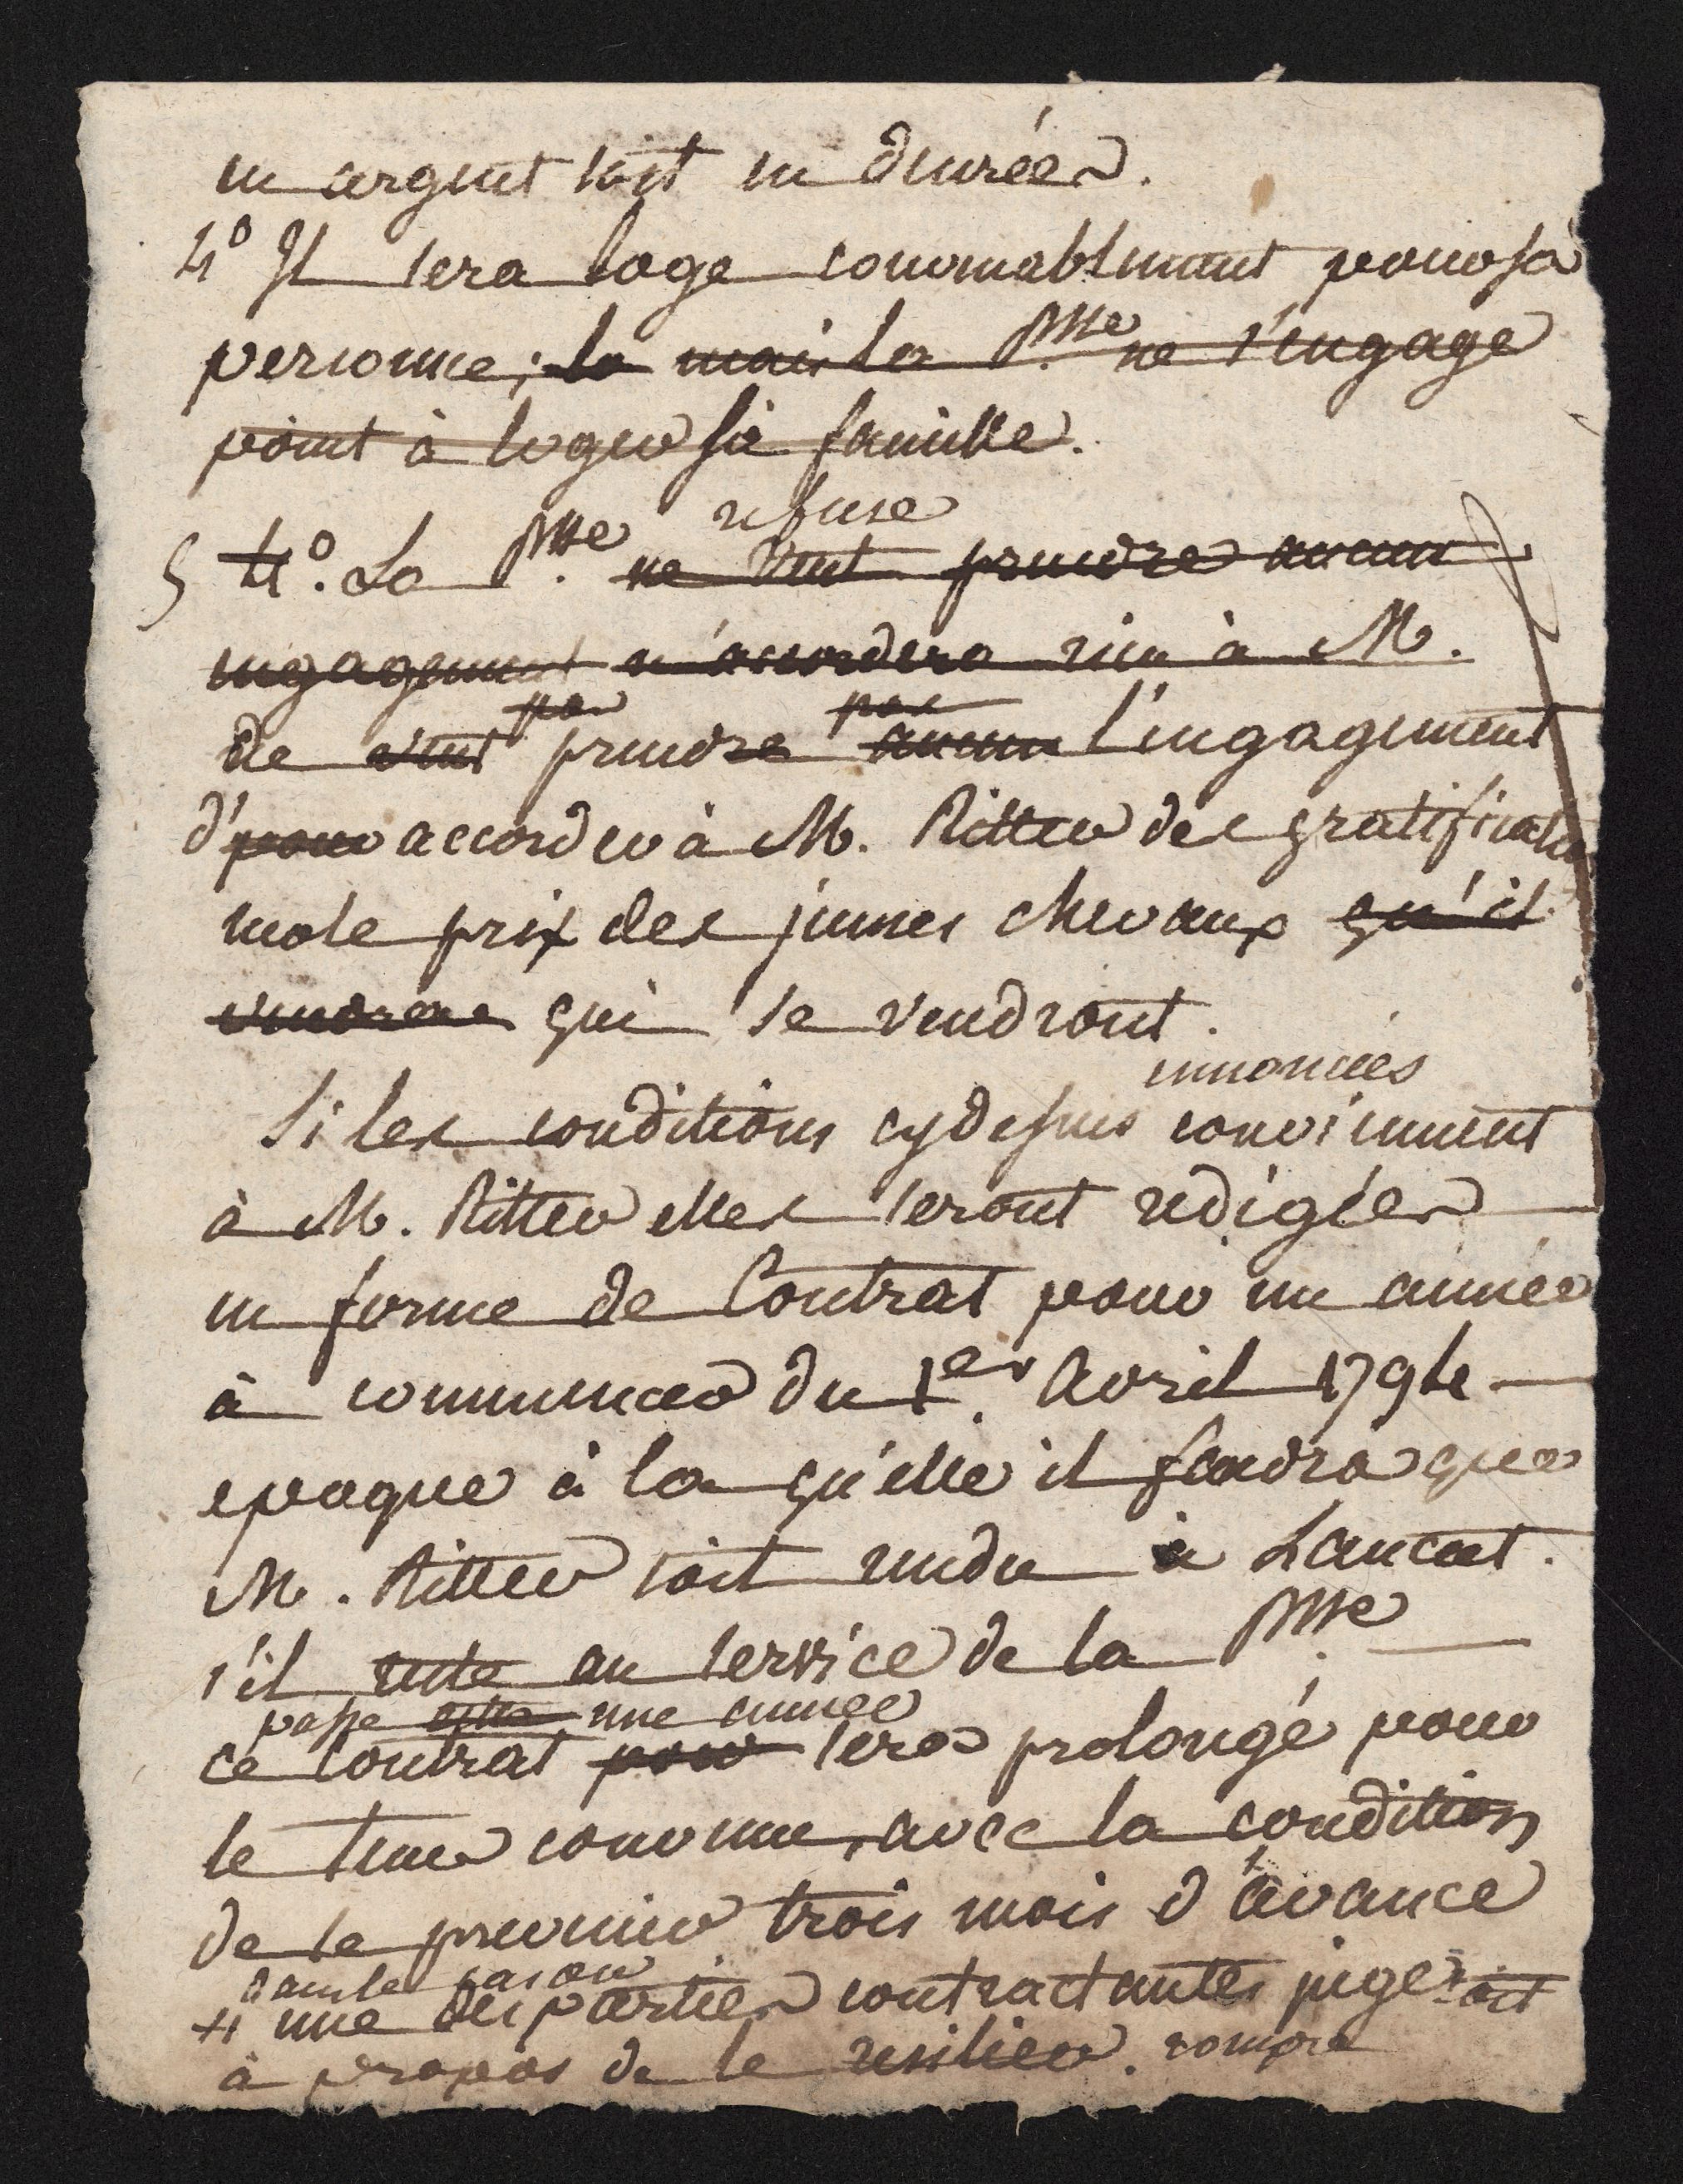 en argent soit en denrées.
4° Il sera logé convenablement pour sa
personne; la mais la Psse ne s'engage
point à loger sa famille.
refuse
5 4°. La Psse ne veut prendre aucun
engagement n'accordera rien à M.
pas pas
de veut prendre aucun l'engagement
d'pour accorder à M. Ritter des gratificatio
prix des jeunes chevaux qu'il
vendrona qui se vendront.
ennoncées
Si les conditions cydessus conviennent
à M. Ritter elles seront redigées
en forme de Contrat pour une année
à commencer du 1er. Avril 1794
epoque à la qu'elle il faudra que
M. Ritter soit rendu à Lancut.
s'il reste au service de la Psse
passe cette une année
ce Contrat pour sera prolongé pour
le tems convenu, avec la condition
de se prevenir trois mois d'avance
dans le cas ou
+ une des parties contractantes jugeroit
à propos de le resilier. rompre